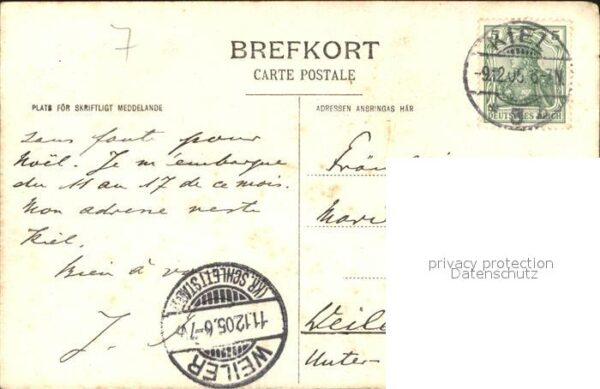 7
BREFKORT
CARTE POSTALE
PLATS FÖR SKRIFTLIGT MEDDELANDE
ADRESSEN ANBRINGAS HÄR
5 5
DEUTSCHES REICH
KIEL
-9.12.05.6-7N.
* 3
sans faut pour
Noël. Je m'embarque
du 11 au 17 de ce mois.
Mon adresse reste
Kiel.
Bien à
J.
WEILER
11.12.05.6-7
(KR. SCHLETTSTADT)
Weile
Unter-
privacy protection
Datenschutz